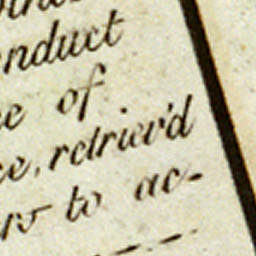 nduct
e of
ce, retriev'd
rs to ac-